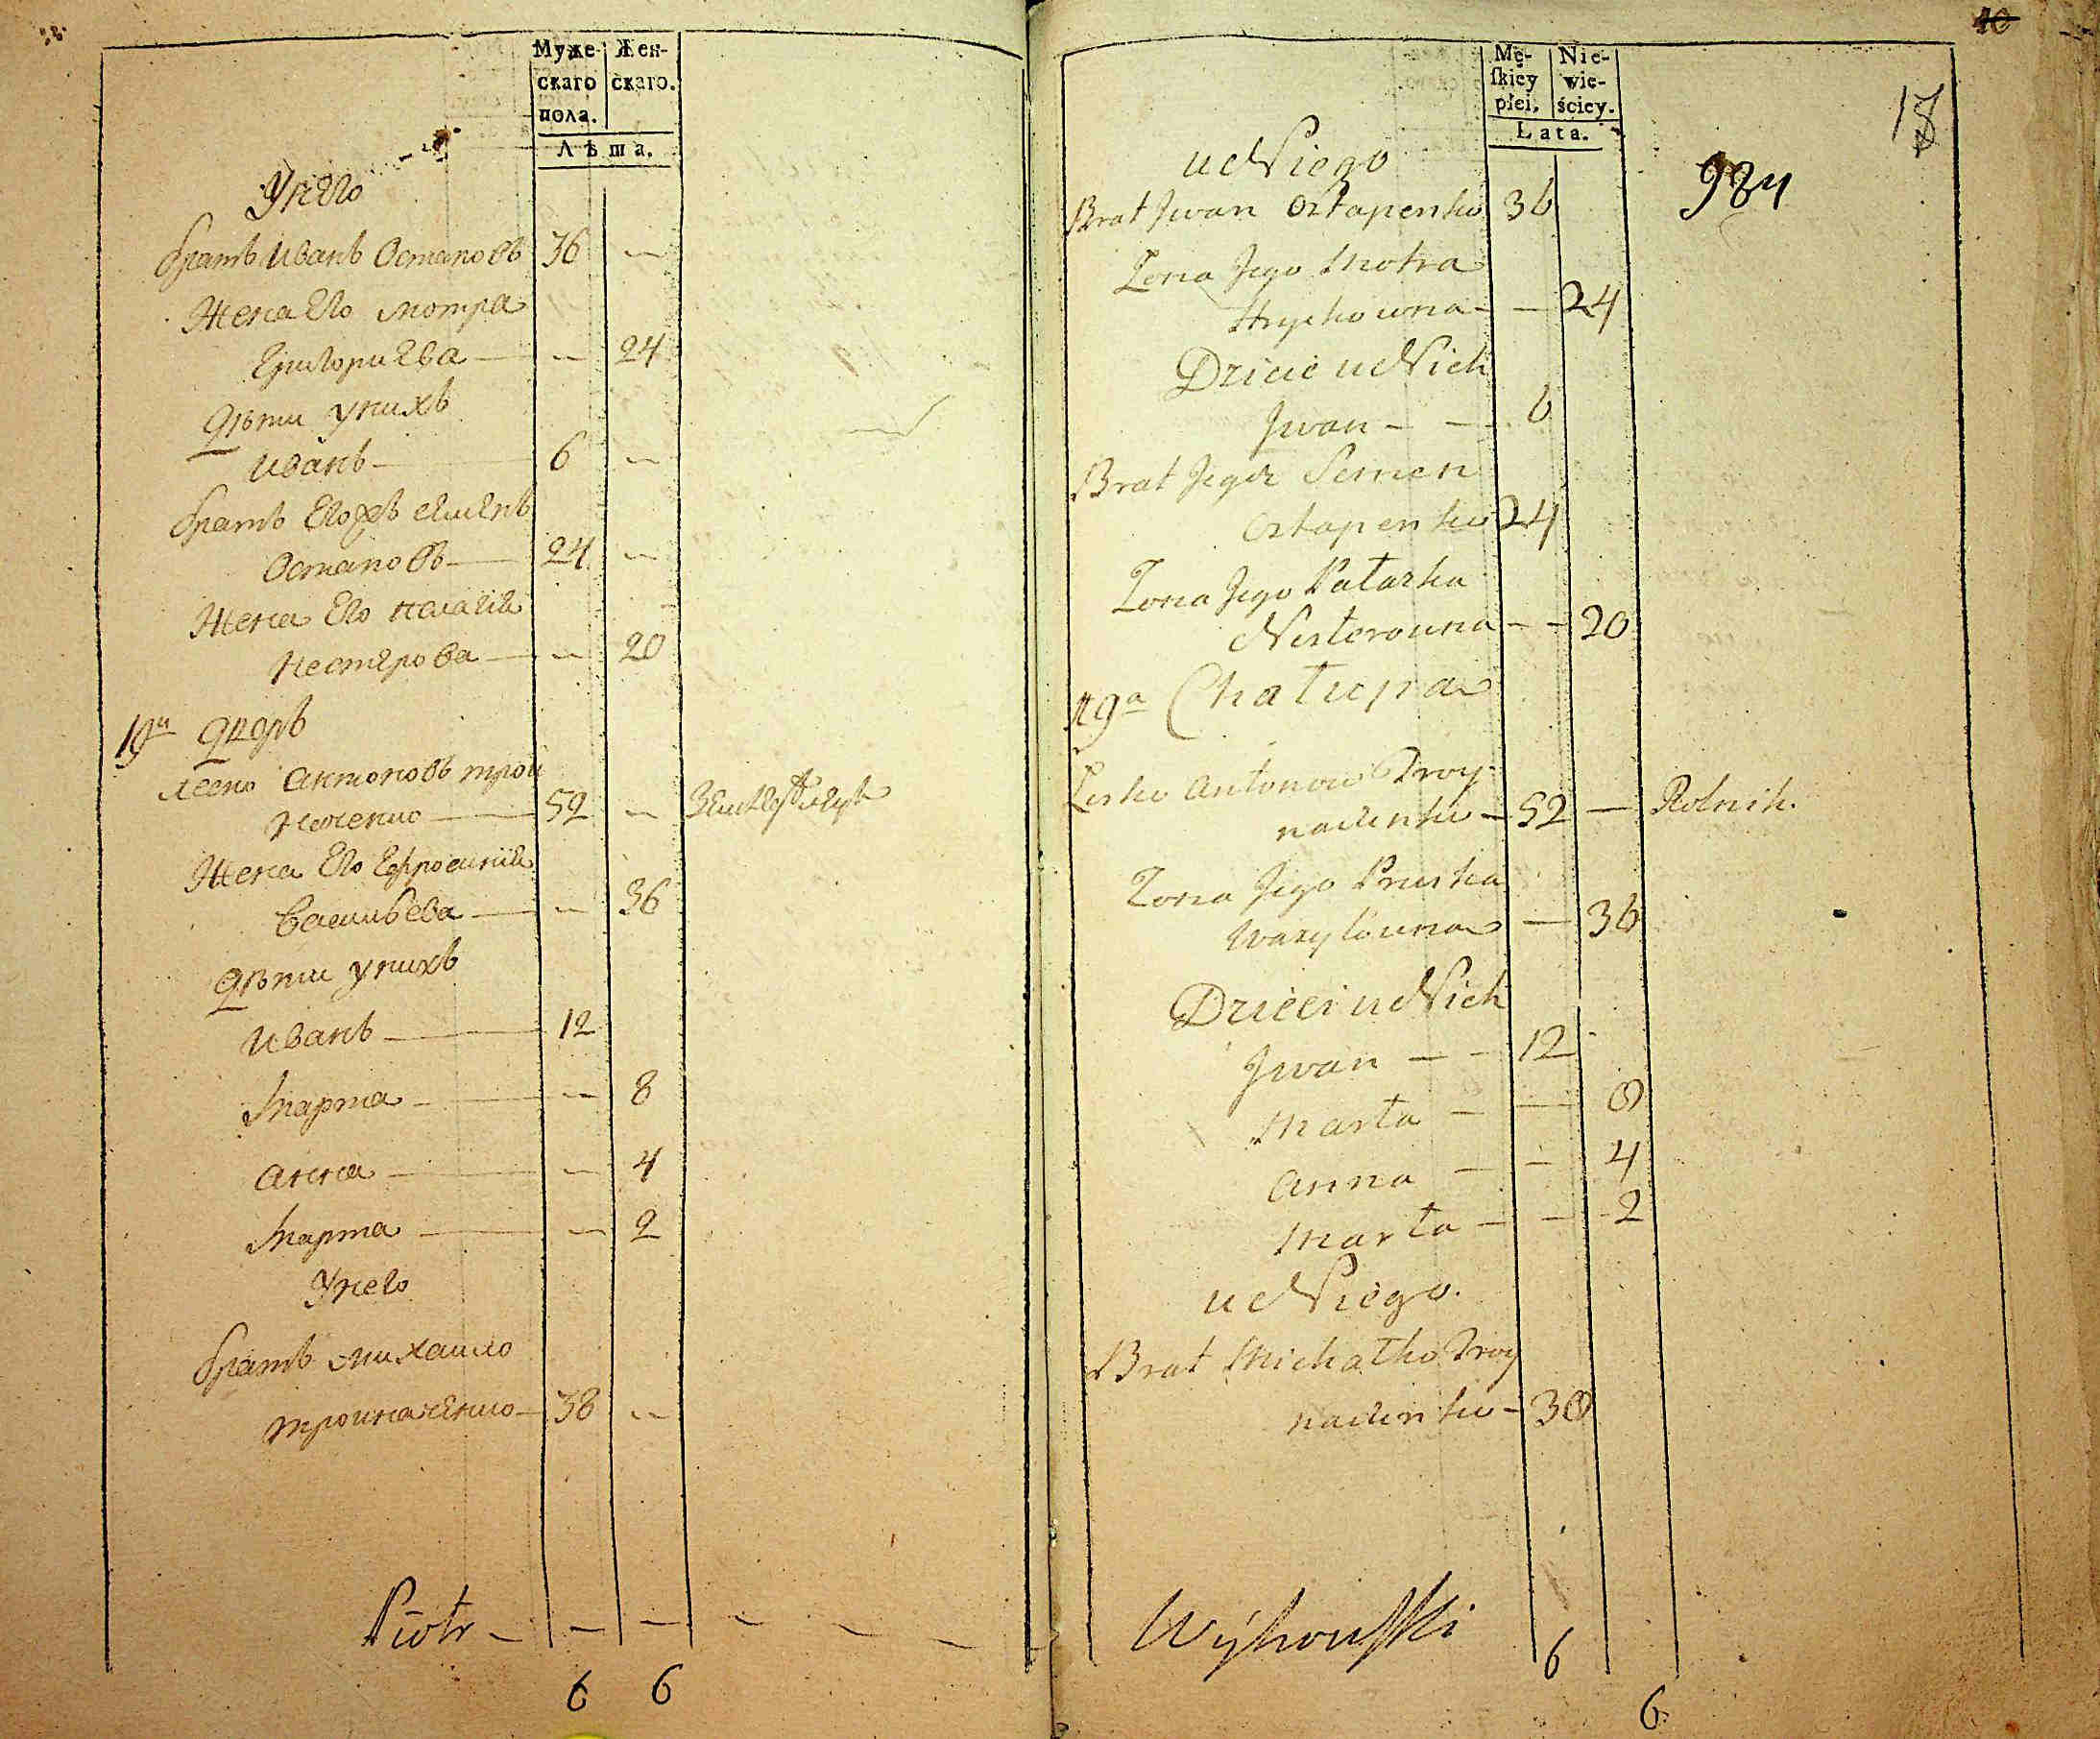 Муже-
скаго
пола.
Жен-
скаго.
Лѣта.
У него
братъ Иванъ Остаповъ 36 —
Жена Его мотра
Григориева — — 24
Дѣти у нихъ
Иванъ — 6 —
братъ Его же семенъ
Остаповъ — 24 —
Жена Его палагия
Нестерова — — 20
19й дворъ
леско антоновъ трои
наченко — 52 —
Жена Его Ефросиния
Васильева — — 36
Дѣти у нихъ
Иванъ — 12
Марта — — 8
анна — — 4
Марта — — 2
У него
братъ михаило
троиначенко — 38 —
Piotr — — — — — —
6 6
10
Mę-
ſkiey
płei.
Nie-
wie-
ściey.
Lata.
17
984
u Niego
Brat Jwan Ostapenko 36
Zona Jego Motra
Hryhowna — — 24
Dzieci u Nich
Jwan — — 6
Brat Jegoż Semen
Ostapenko 24
Zona Jego Pałaszka
Nesterowna — — 20
19a Chałupa
Lesko Antonow Troy-
naczenko — 52 — Rolnik.
Zona Jego Pruska
Wasylowna — 36
Dzieci u Nich
Jwan — — 12
Marta — — 8
Anna — — 4
Marta — — 2
u Niego.
Brat Michałko Troy
naczenko — 38
Wyhowſki
6
6